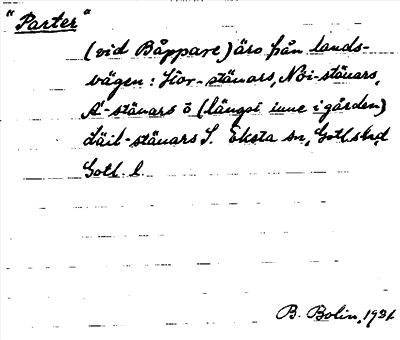 "Parter"
(vid Båppare) äro från lands-
vägen: Stor-stäuars, Nöi-stäuars,
Å-stäuars ö (längst inne i gården)
Läil-stäuars S. Eksta sn, Gotl. s hd
Gotl. l.
B. Bolin, 1931